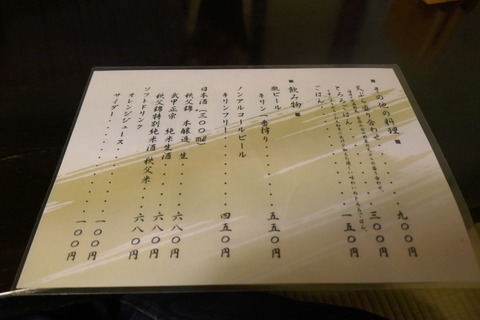 ■ その他の料理 ■
天ぷら盛り合わせ・・・・・・九〇〇円
とろろごはん・・・・・・三〇〇円
ごはん・・・・・・一五〇円
■ 飲み物 ■
瓶ビール
キリン一番搾り・・・・・五五〇円
ノンアルコールビール
キリンフリー・・・・・四五〇円
日本酒(三〇〇㎖)
秩父錦 本醸造 生・・・・六八〇円
武甲正宗 純米生酒・・・・六八〇円
秩父錦特別純米酒 秩父米・・六八〇円
ソフトドリンク
オレンジジュース・・・・・一〇〇円
サイダー・・・・・・一〇〇円